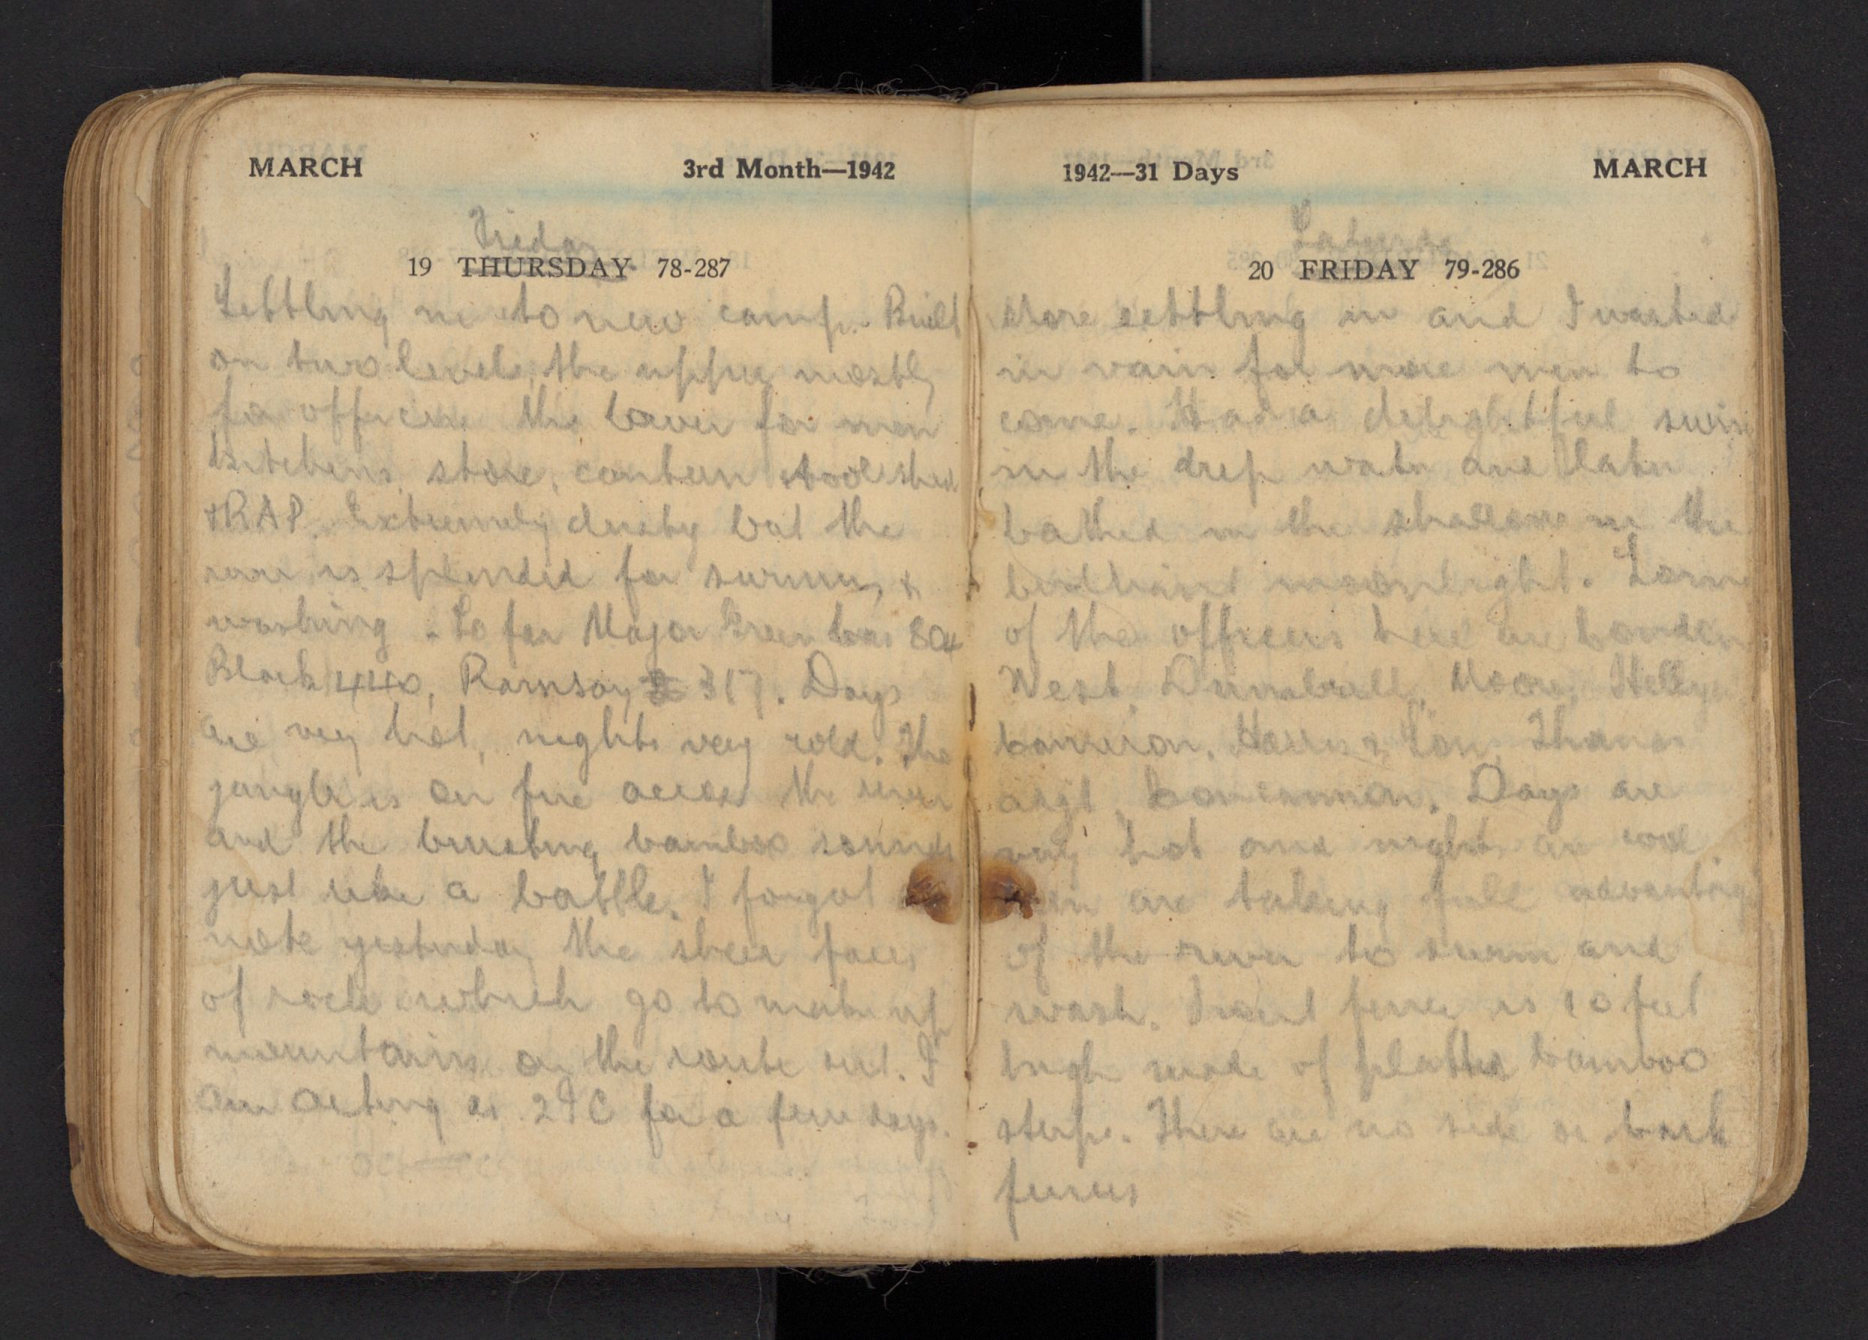 MARCH 3rd Month—1942
Friday
19 THURSDAY 78-287
Settling in to new camp. Built
on two levels, the upper mostly
for officers the lower for men
kitchens, store, canteen tool shed
& RAP. Extremely dusty but the
river is splendid for swimming &
washing. So far Major Green has 804
Black 440, Ramsay 317. Days
are very hot, nights very cold. The
jungle is on fire across the river
and the bursting bamboo sounds
just like a battle. I forgot to
note yesterday the sheer faces
of rock which go to make up
mountains on the route out. I
am acting as 2IC for a few days.
1942—31 Days MARCH
Saturday
20 FRIDAY 79-286
More settling in and I waited
in vain for more men to
come. Had a delightful swim
in the deep water and later
bathed in the shallows in the
brilliant moonlight. Some
of the officers here are
West, Dunaball, Moore, Hellyer
Cameron, Harris,
Days are
very hot and nights are cool
Men are taking full advantage
of the river to swim and
wash. Front fence is 10 feet
high made of platted bamboo
strips. There are no side or back
fences